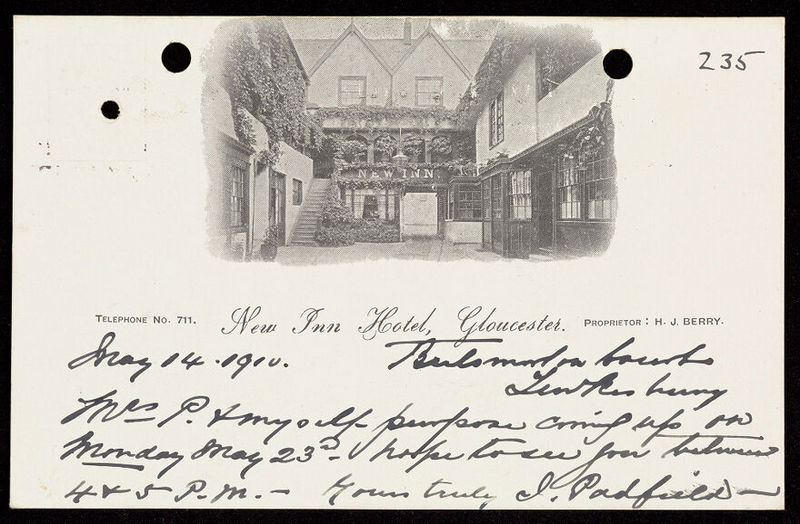 235
NEW INN
TELEPHONE No. 711. New Inn Hotel, Gloucester. PROPRIETOR: H. J. BERRY.
May 14. 1910.
Tewkesbury
Mrs P. & myself purpose coming up on
Monday May 23rd. hope to see you between
4 & 5 P.M. - Yours truly J. Padfield -